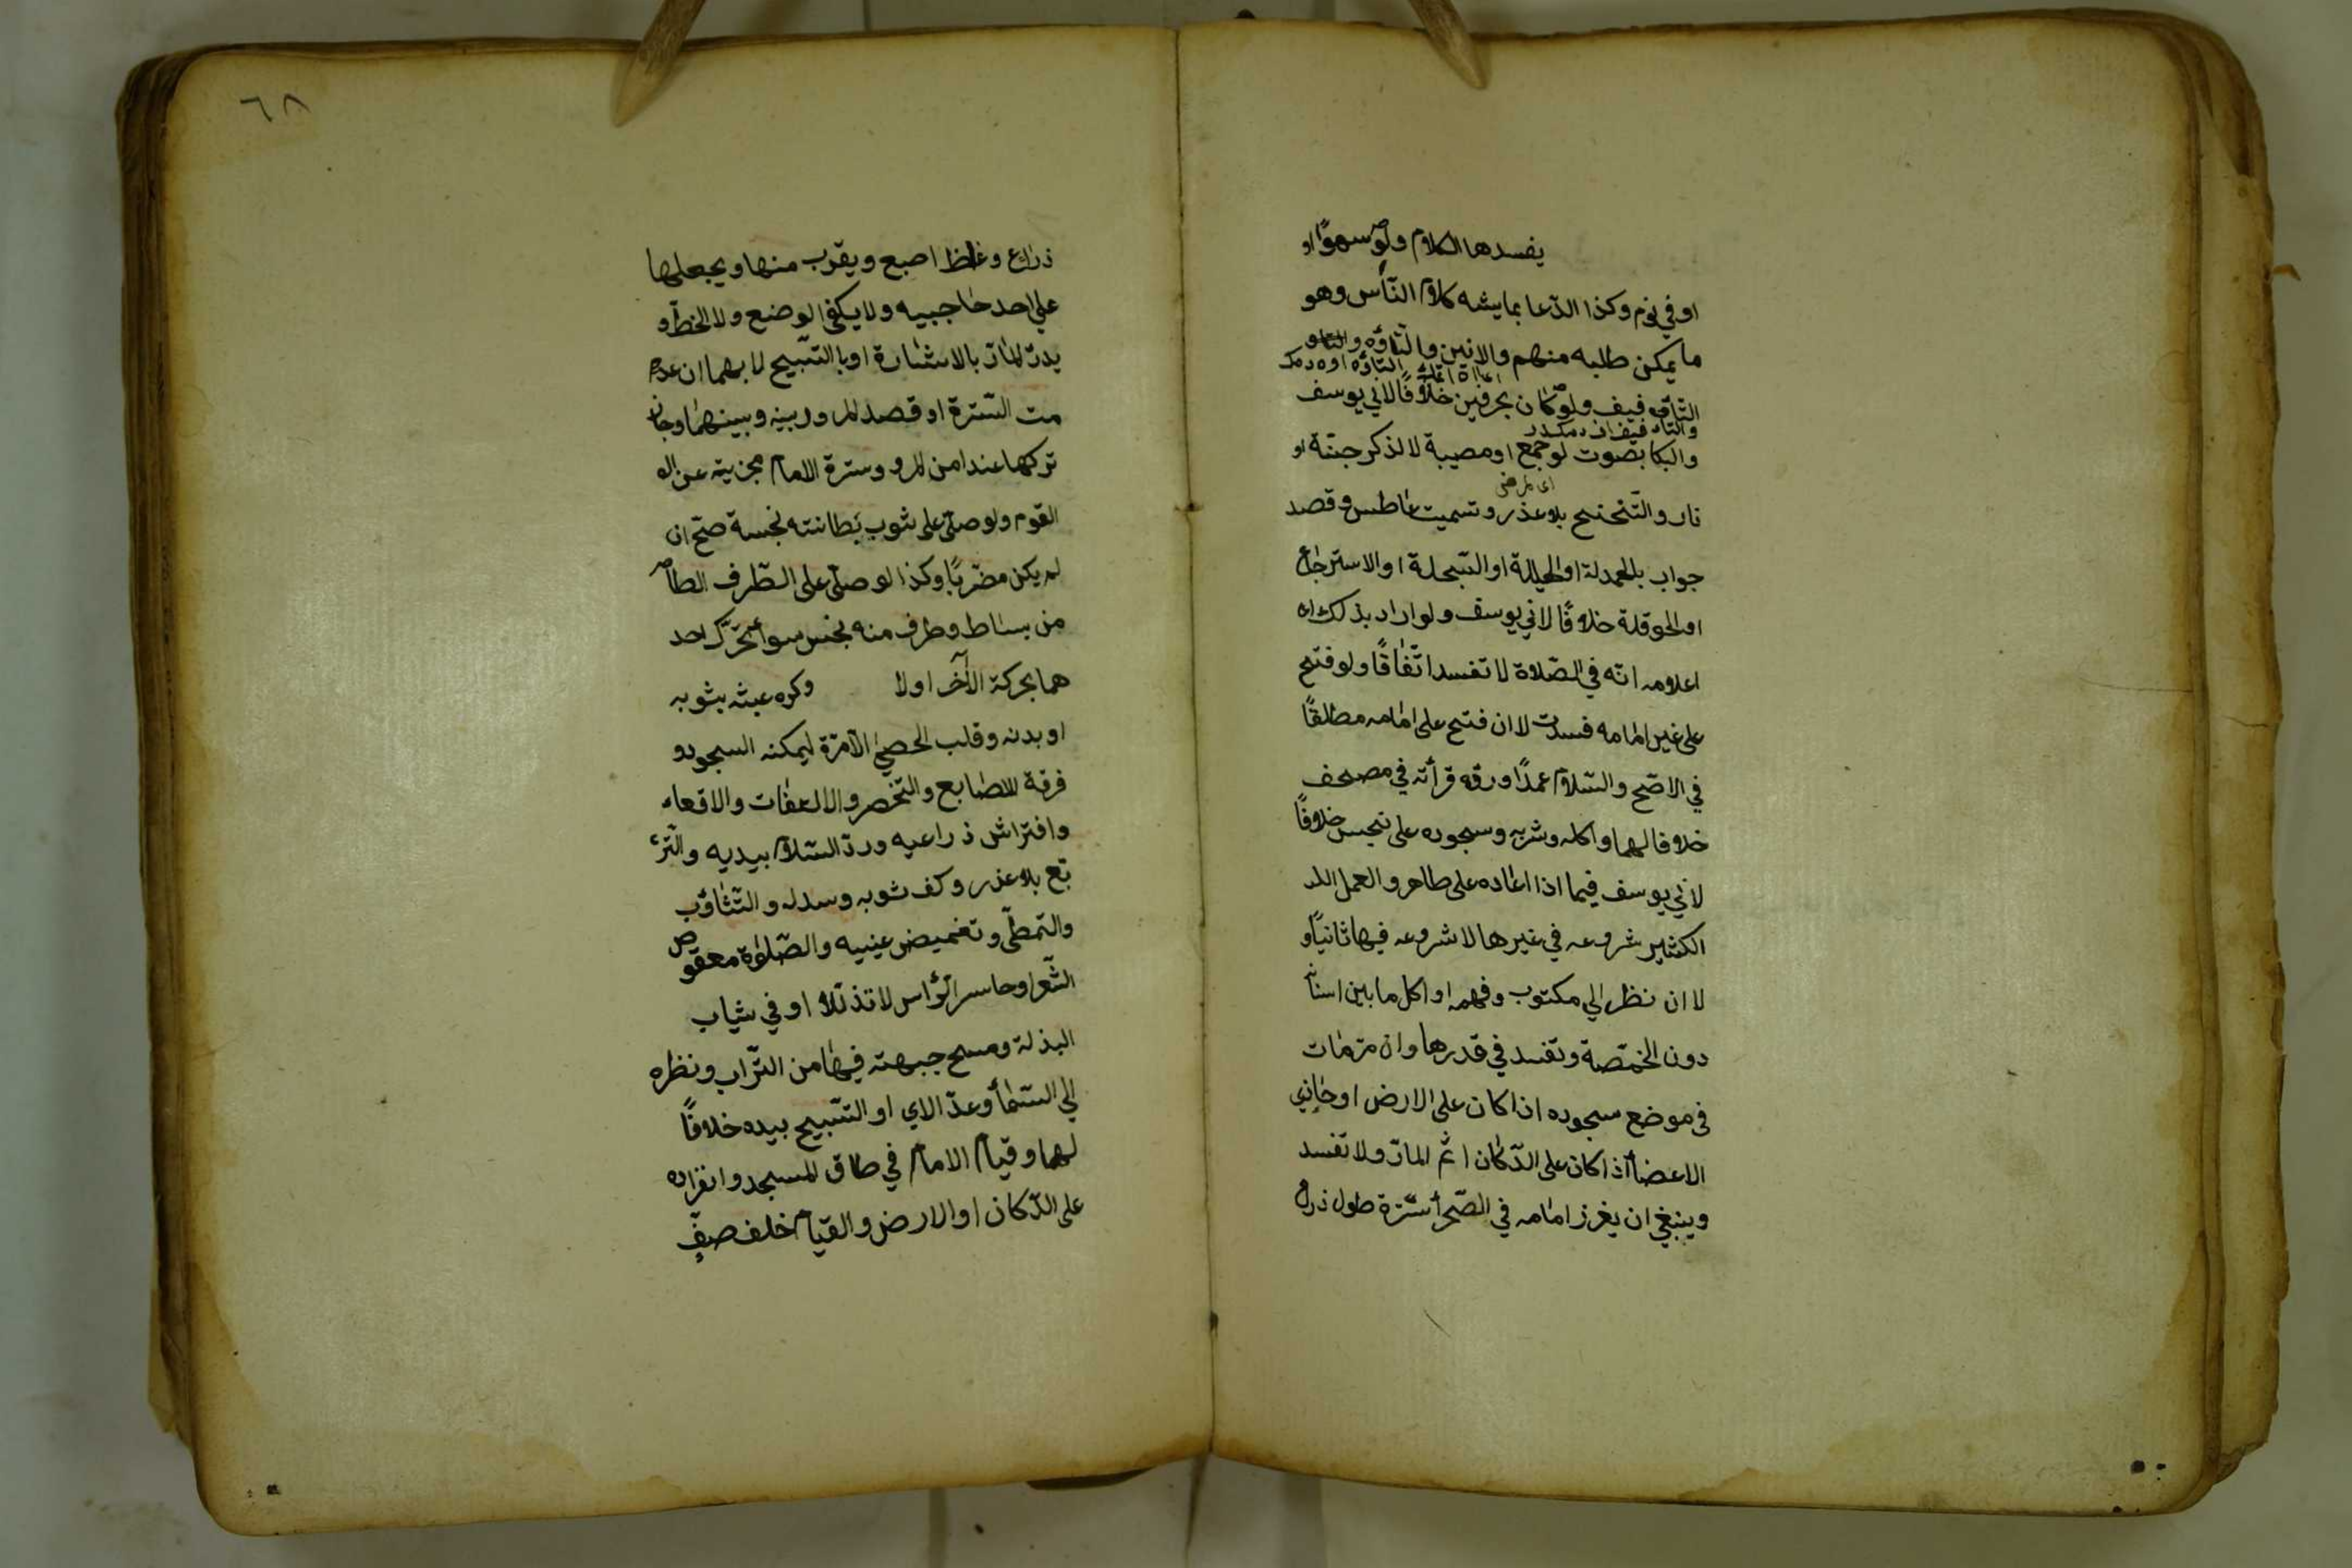 يفسدها الكلام ولو سهوًا او
او في نوم وكذا الدّعا بما يشبه كلام النّاس وهو
ما يمكن طلبه منهم والانين والتّاوّه
التّافيف ولو كان بحرفين خلافًا لابي يوسف
والبكا بصوت لوجع او مصيبة لا لذكر جنّة او
اى لمرض
نار والتّنحنح بلا عذر وتسميت عاطس وقصد
جواب بالحمدلة او الهيللة او السّبحلة او الاسترجاع
او الحوقلة خلافًا لابي يوسف ولو اراد بذلك
اعلامه انّه في الصّلاة لا تفسد اتّفاقًا ولو فتح
على غير امامه فسدت لا ان فتح على امامه مطلقًا
في الاصّح والسّلام عمدًا وردّه قرأته في مصحف
خلافا لهما واكله وشربه وسجوده على نجس خلافًا
لابي يوسف فيما اذا اعاده على طاهر والعمل
الكثير شروعه في غيرها لا شروعه فيها ثانيًا و
لا ان نظر الي مكتوب وفهمه او اكل ما بين اسنانه
دون الحمّصة وتفسد في قدرها وان مرّ مات
في موضع سجوده اذا كان على الارض او حاذي
الاعضأ اذا كان على الدّكان اثم المارّ ولا تفسد
وينبغي ان يغرز امامه في الصّحرأ سترة طول ذراع
٦٨
ذراع وغلظ اصبع ويقرب منها ويجعلها
على احد حاجبيه ولا يكفى الوضع ولا الخطّ و
يدرّ المارّ بالاشارة او بالتّسبيح لا بهما ان عد
مت السّترة او قصد المرور بينه وبينهما وجاز
تركها عند امن المرور وسترة الامام مجزية عن
القوم ولو صلّى على ثوب بطانته نجسة صحّ ان
لم يكن مضرّبًا وكذا لو صلّى على الطّرف الطاهر
من بساط وطرف منه نجس سوأ تحرّك احد
هما بحركة الآخر اولا وكره عبثه بثوبه
او بدنه وقلب الحصى الّا مرّة ليمكنه السجود و
فرقة الاصابع والتخصر والالتفات والاقعاء
وافتراش ذراعيه وردّ السّلام بيديه والتّر
بّع بلا عذر وكف ثوبه وسدله والتّثاوٴب
والتّمطّى وتغميض عينيه والصّلوة معقوص
الشّعر او حاسر الرّأس لا تذلّلا او في ثياب
البذلة ومسح جبهته فيها من التّراب ونظره
الي السّمأ وعدّ الاي او التّسبيح بيده خلافًا
لهما وقيام الامام في طاق المسجد وانفراده
على الدّكان او الارض والقيام خلف صفّ